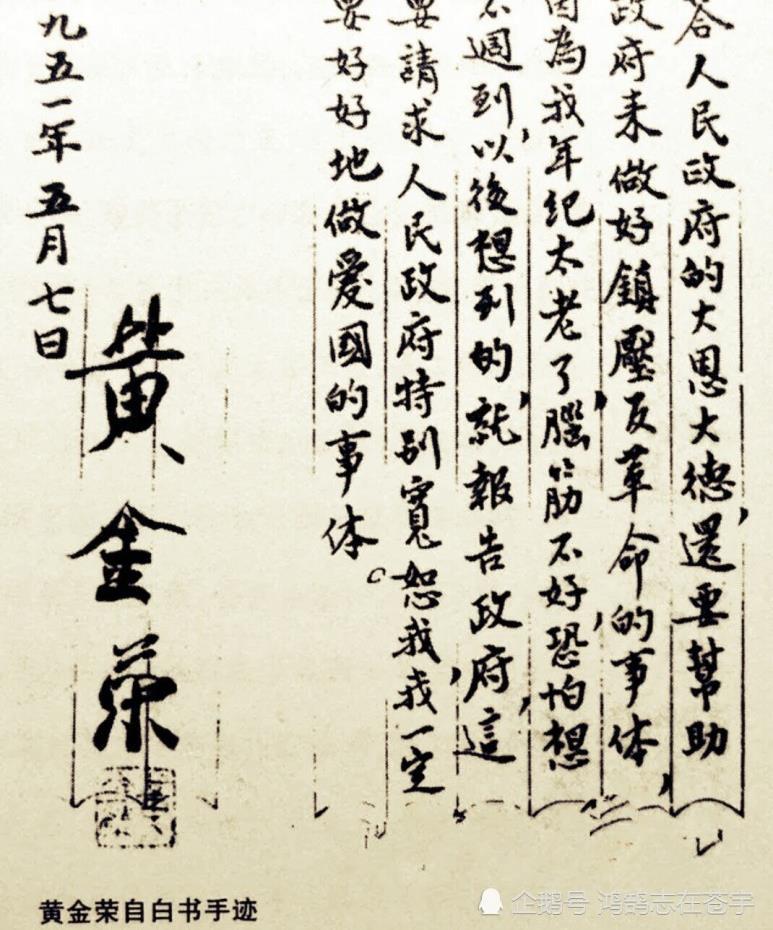 答人民政府的大恩大德，還要幫助
政府来做好鎮壓反革命的事体，
因為我年纪太老了，腦筋不好，恐怕想
不週到，以後想到的，就報告政府，這
要請求人民政府特别寬恕我，我一定
要好好地做愛國的事体。
九五一年五月七日
黄金荣
黄金荣自白书手迹
企鹅号 鸿鹄志在苍宇